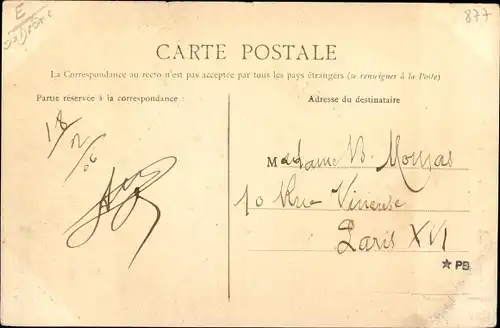 E
877
CARTE POSTALE
La Correspondance au recto n'est pas acceptée par tous les pays étrangers (se renseigner à la Poste)
Partie réservée à la correspondance :
Adresse du destinataire
18/2/06
Madame B.
10 Rue Vineuse
Paris XVI
★ PB